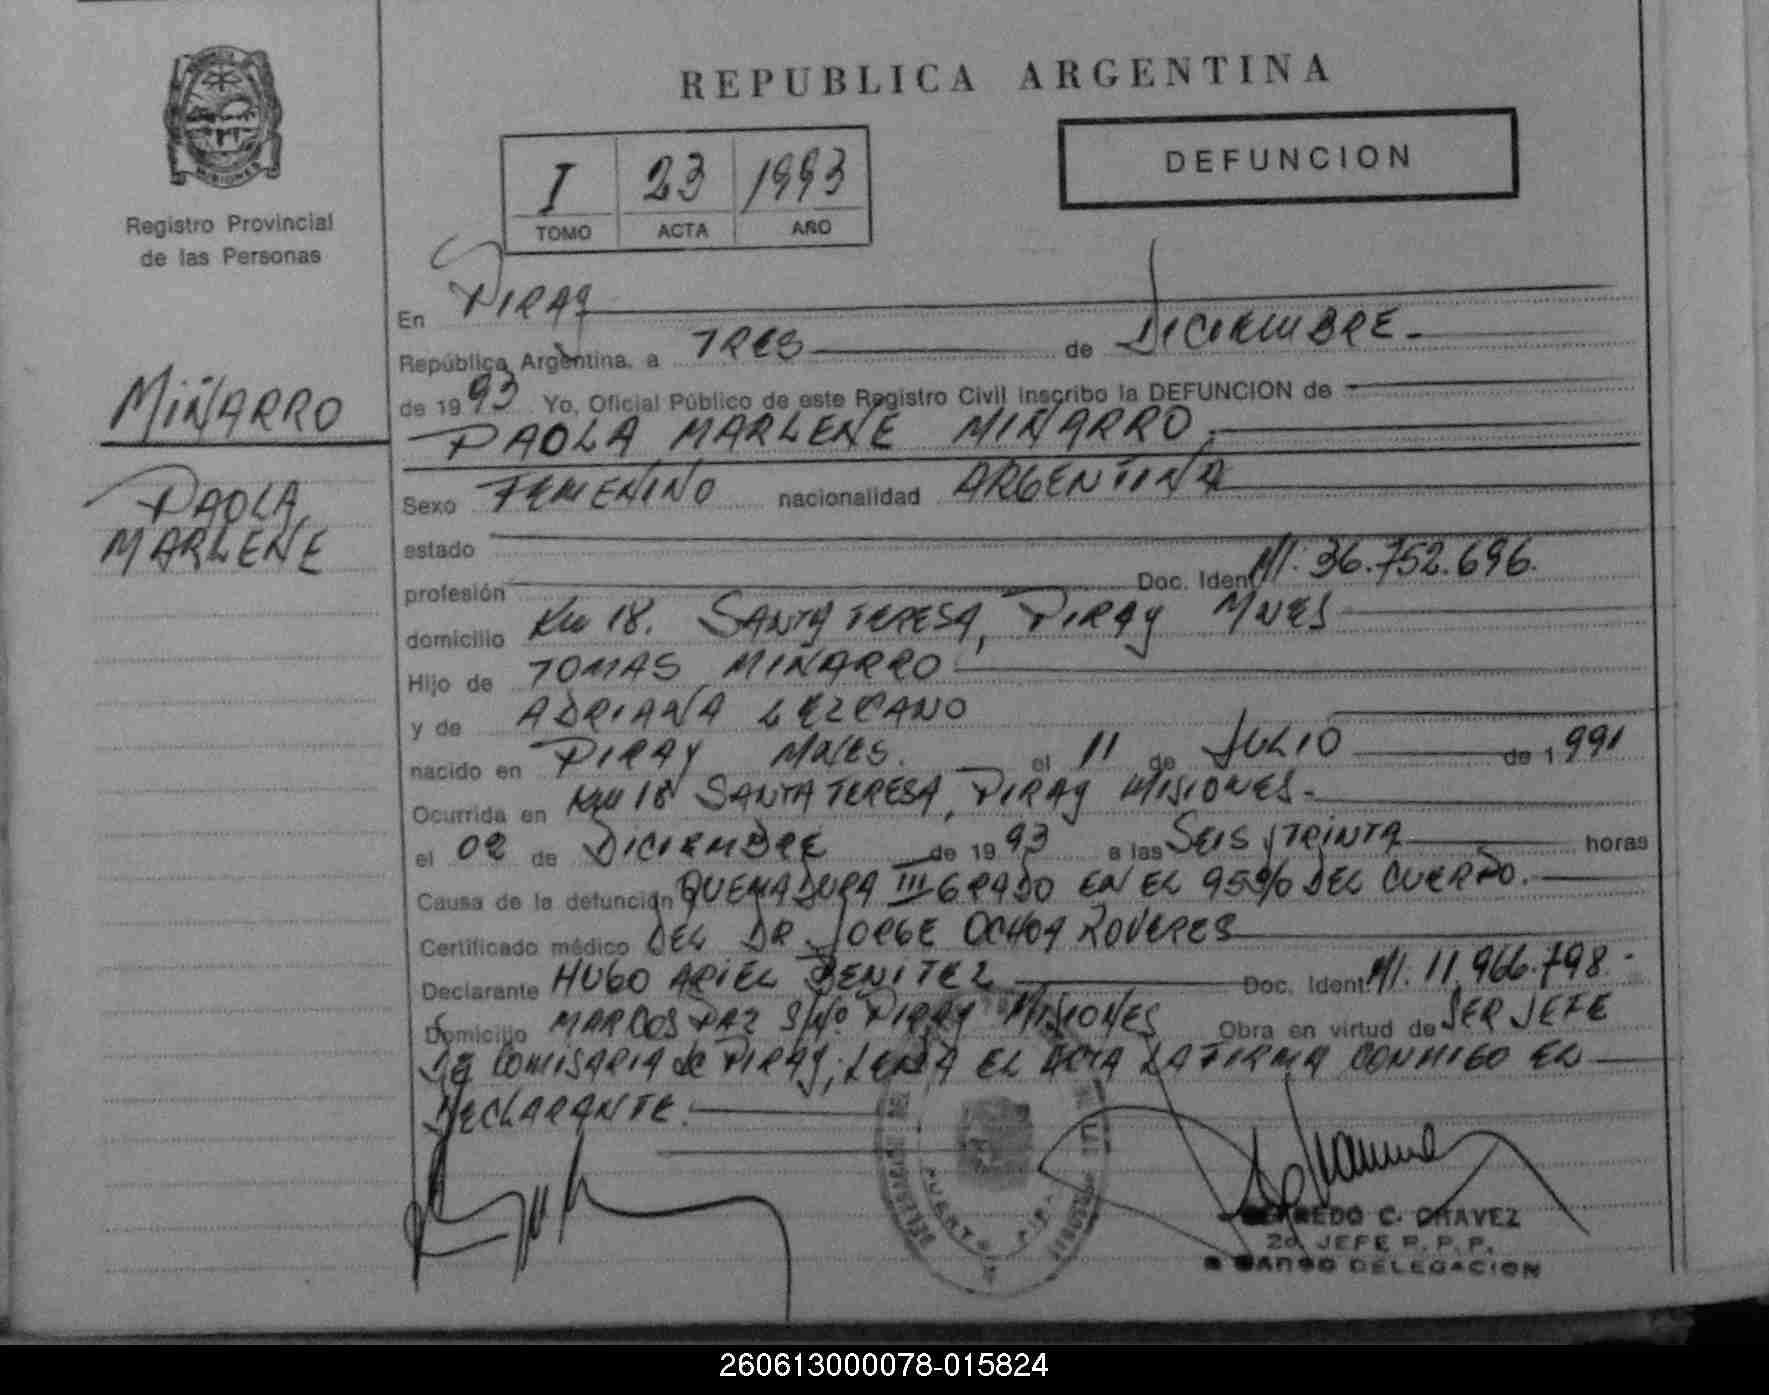 REPUBLICA ARGENTINA
MISIONES
Registro Provincial
de las Personas
I 23 1993
TOMO ACTA AÑO
DEFUNCION
En PIRAY
República Argentina, a TRES de DICIEMBRE.
de 1993 Yo, Oficial Público de este Registro Civil inscribo la DEFUNCION de
MIÑARRO
PAOLA MARLENE
PAOLA MARLENE MIÑARRO.
Sexo FEMENINO nacionalidad ARGENTINA
estado
profesión Doc. Ident. MI. 36.752.696.
domicilio Km 18. SANTA TERESA, PIRAY MNES
Hijo de TOMAS MIÑARRO
y de ADRIANA LEZCANO
nacido en PIRAY MNES. el 11 de JULIO de 1991
Ocurrida en Km 18 SANTA TERESA, PIRAY MISIONES.
el 02 de DICIEMBRE de 1993 a las SEIS Y TRINTA horas
Causa de la defunción QUEMADURA III GRADO EN EL 95% DEL CUERPO.
Certificado médico DEL DR JORGE OCHOA ROVERES
Declarante HUGO ARIEL BENITEZ Doc. Ident. MI. 11.966.798.-
Domicilio MARCOS PAZ S/Nº PIRAY MISIONES Obra en virtud de SER JEFE
DE COMISARIA de PIRAY, LEIDA EL ACTA LA FIRMA CONMIGO EL
DECLARANTE.
PUERTO
C. CHAVEZ
2º JEFE R. P. P.
DELEGACION
260613000078-015824